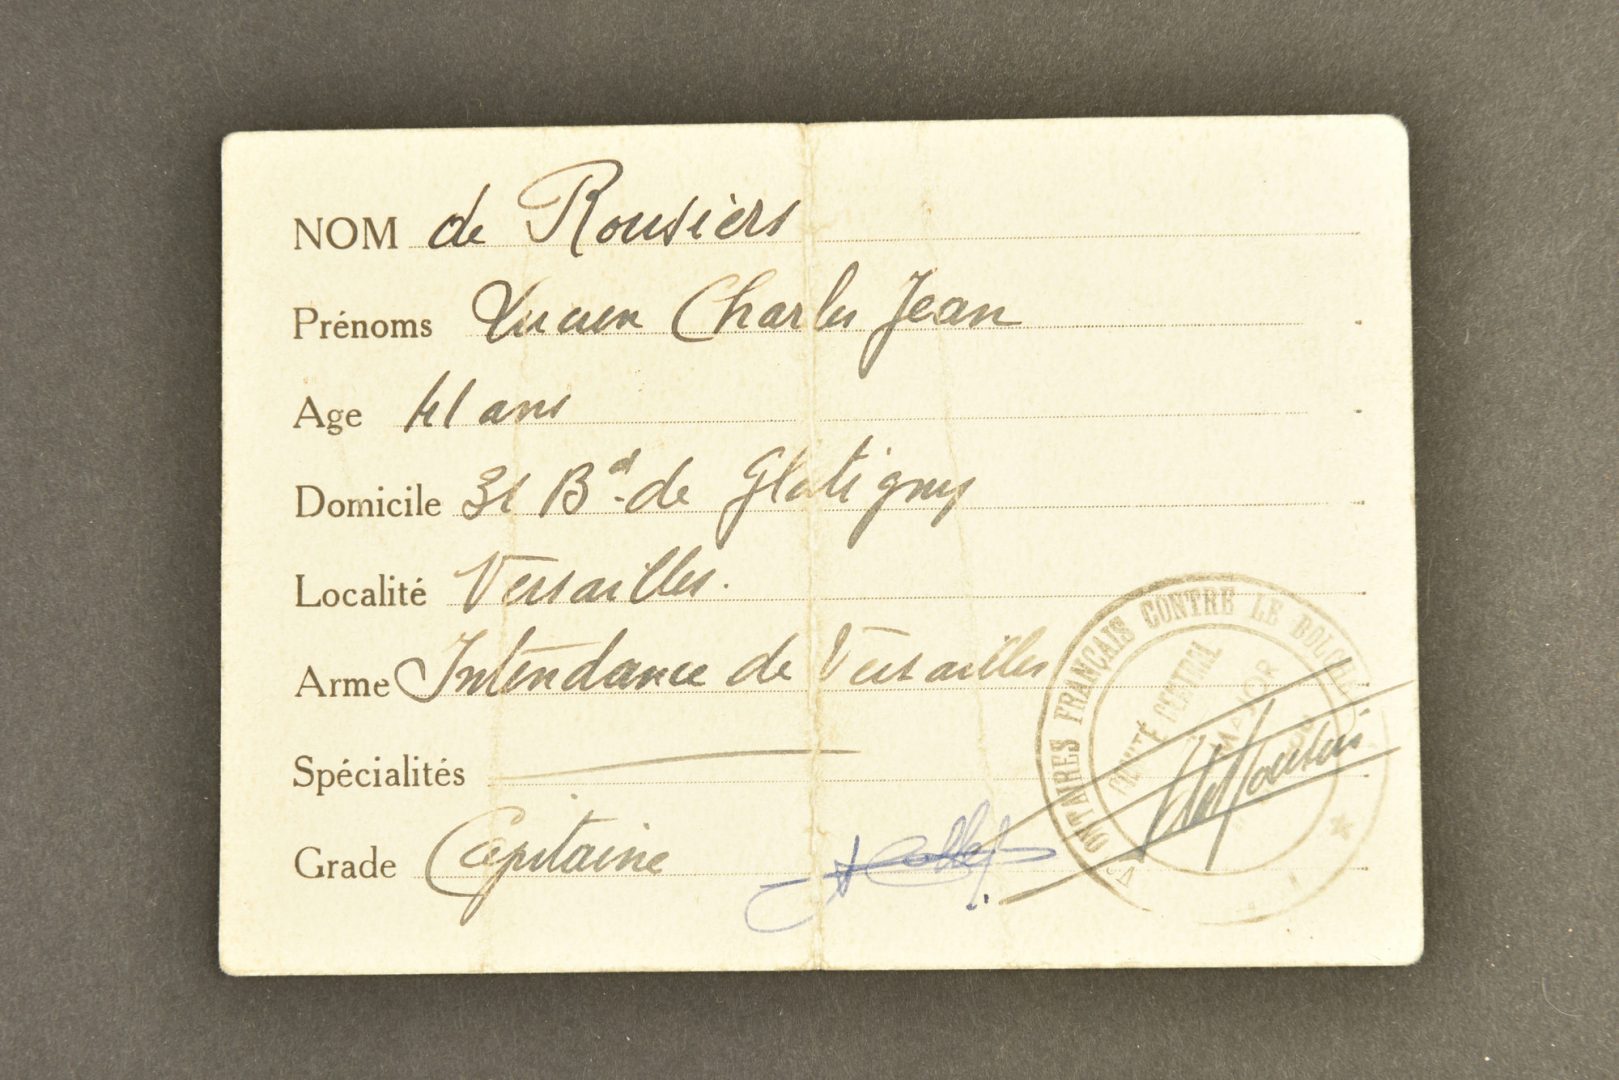 NOM de Rousiers
Prénoms Lucien Charles Jean
Age 41 ans
Domicile 31 Bd. de Glatigny
Localité Versailles.
Arme Intendance de Versailles
Spécialités
Grade Capitaine
ONTAIRES FRANÇAIS CONTRE LE BOLC
COMITÉ CENTRAL
MAJOR